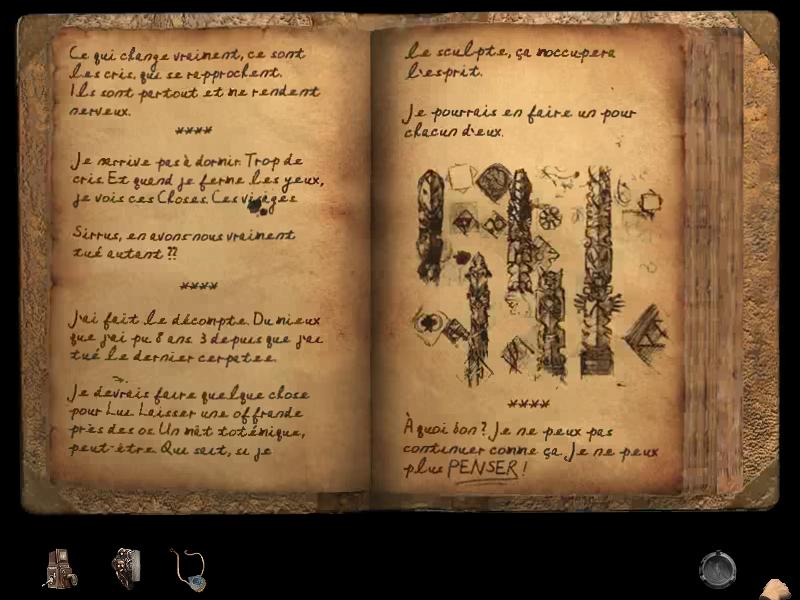 Ce qui change vraiment, ce sont
les cris, qui se rapprochent.
Ils sont partout et me rendent
nerveux.
****
Je n'arrive pas à dormir. Trop de
cris. Et quand je ferme les yeux,
je vois ces Choses. Ces visages
Sirrus, en avons-nous vraiment
tué autant ??
****
J'ai fait le décompte. Du mieux
que j'ai pu. 8 ans. 3 depuis que j'ai
tué le dernier cerpatee.
Je devrais faire quelque chose
pour Lui. Laisser une offrande
près des os. Un mât totémique,
peut-être. Qui sait, si je
le sculpte, ça m'occupera
l'esprit.
Je pourrais en faire un pour
chacun d'eux.
****
À quoi bon ? Je ne peux pas
continuer comme ça. Je ne peux
plus PENSER !